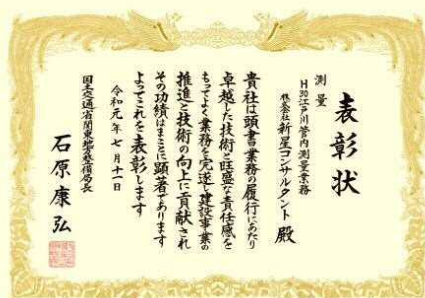 表彰状
測量
H30江戸川管内測量業務
株式会社新星コンサルタント 殿
貴社は頭書業務の履行にあたり
卓越した技術と旺盛な責任感を
もってよく業務を完遂し建設事業の
推進と技術の向上に貢献され
その功績はまことに顕著であります
よってこれを表彰します
令和元年七月十一日
国土交通省関東地方整備局長
石原康弘